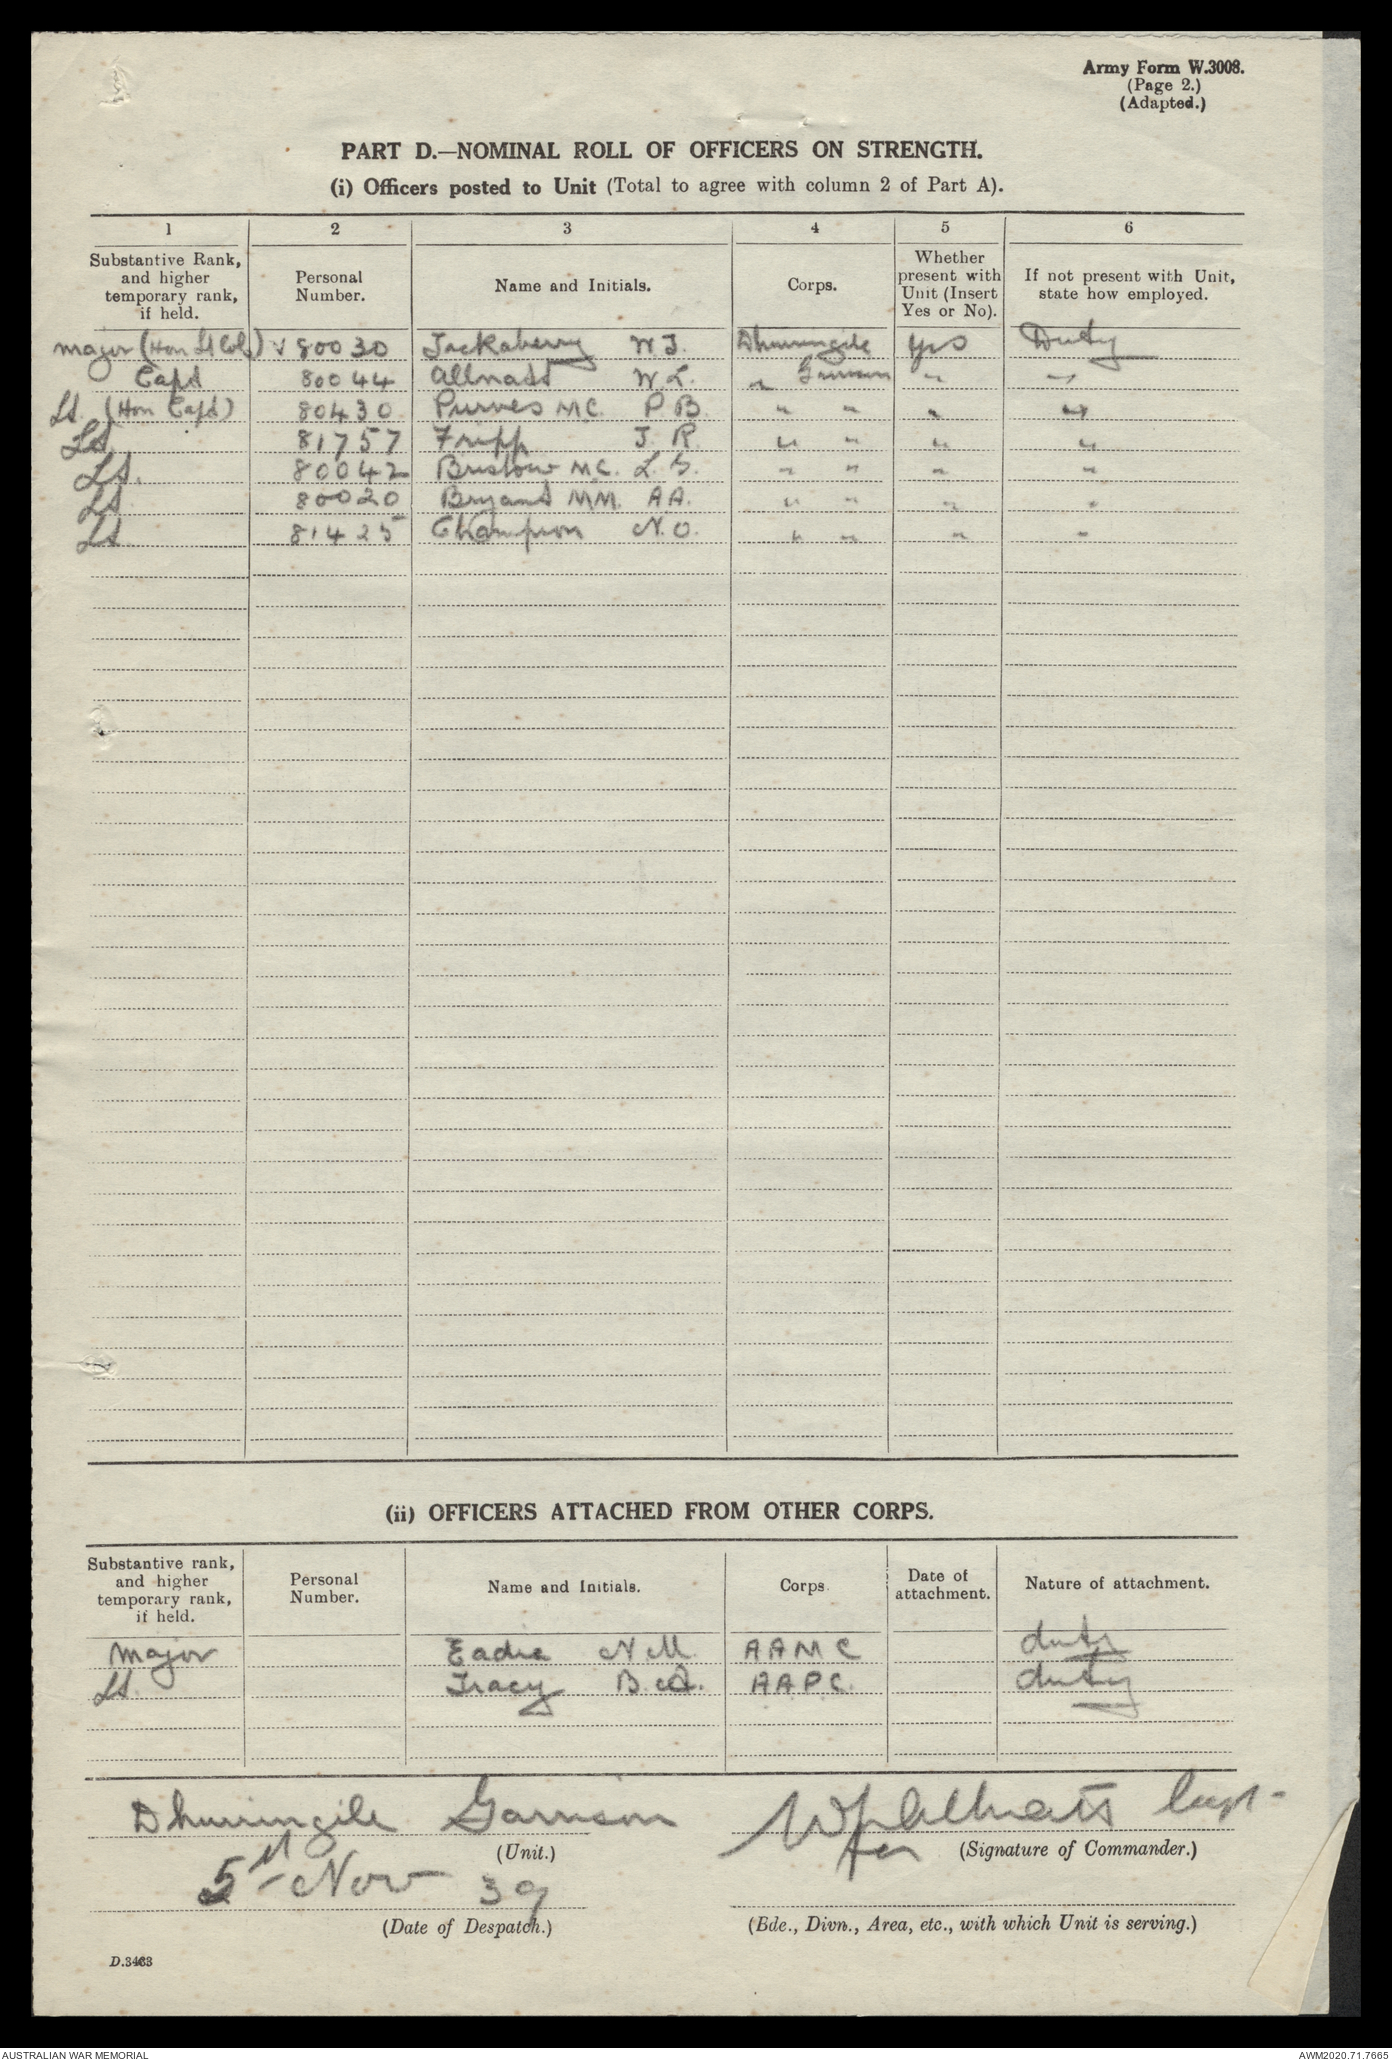 Army Form W.3008.
(Page 2.)
(Adapted.)
PART D.—NOMINAL ROLL OF OFFICERS ON STRENGTH.
(i) Officers posted to Unit (Total to agree with column 2 of Part A).
1 2 3 4 5 6
Substantive Rank, and higher temporary rank, if held. Personal Number. Name and Initials. Corps. Whether present with Unit (Insert Yes or No). If not present with Unit, state how employed.
Major (Hon Lt Col) 80030 Jackaberry W J. Dhurringile Yes Duty
Capt 80044 Allnatt W L. " Garrison " "
Lt. (Hon Capt) 80430 Purves MC. P B. " " " "
Lt 81757 Fripp J. R. " " " "
Lt. 80042 Bristow MC. L. G. " " " "
Lt 80020 Bryant MM. AA. " " " "
Lt 81425 Champion N. O. " " " "
(ii) OFFICERS ATTACHED FROM OTHER CORPS.
Substantive rank, and higher temporary rank, if held. Personal Number. Name and Initials. Corps. Date of attachment. Nature of attachment.
Major Eadie N M. AAMC duty
Lt. Tracy B. A. AAPC. duty
Dhurringile Garrison Allnatt Capt
(Unit.) for (Signature of Commander.)
Nov 39
(Date of Despatch.) (Bde., Divn., Area, etc., with which Unit is serving.)
D.3463
AUSTRALIAN WAR MEMORIAL AWM2020.71.7665